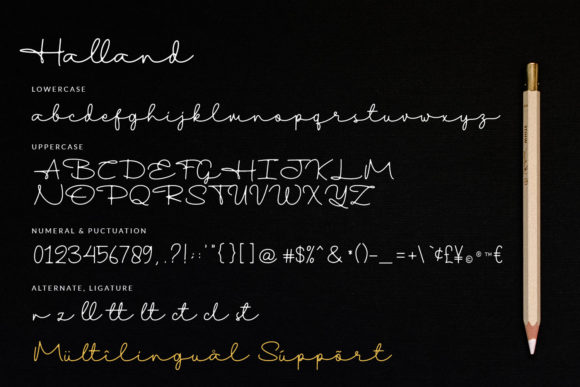 Halland
LOWERCASE
abcdefghijklmnopqrstuvwxyz
UPPERCASE
ABCDEFGHIJKLM
NOPQRSTUVWXYZ
NUMERAL & PUCTUATION
0123456789,.?!;:'"{}[]@ #$%^& *()-_=+\`¢£¥©®™€
ALTERNATE, LIGATURE
r z ll tt lt ct cl st
MüLtîlinguål Súppõrt